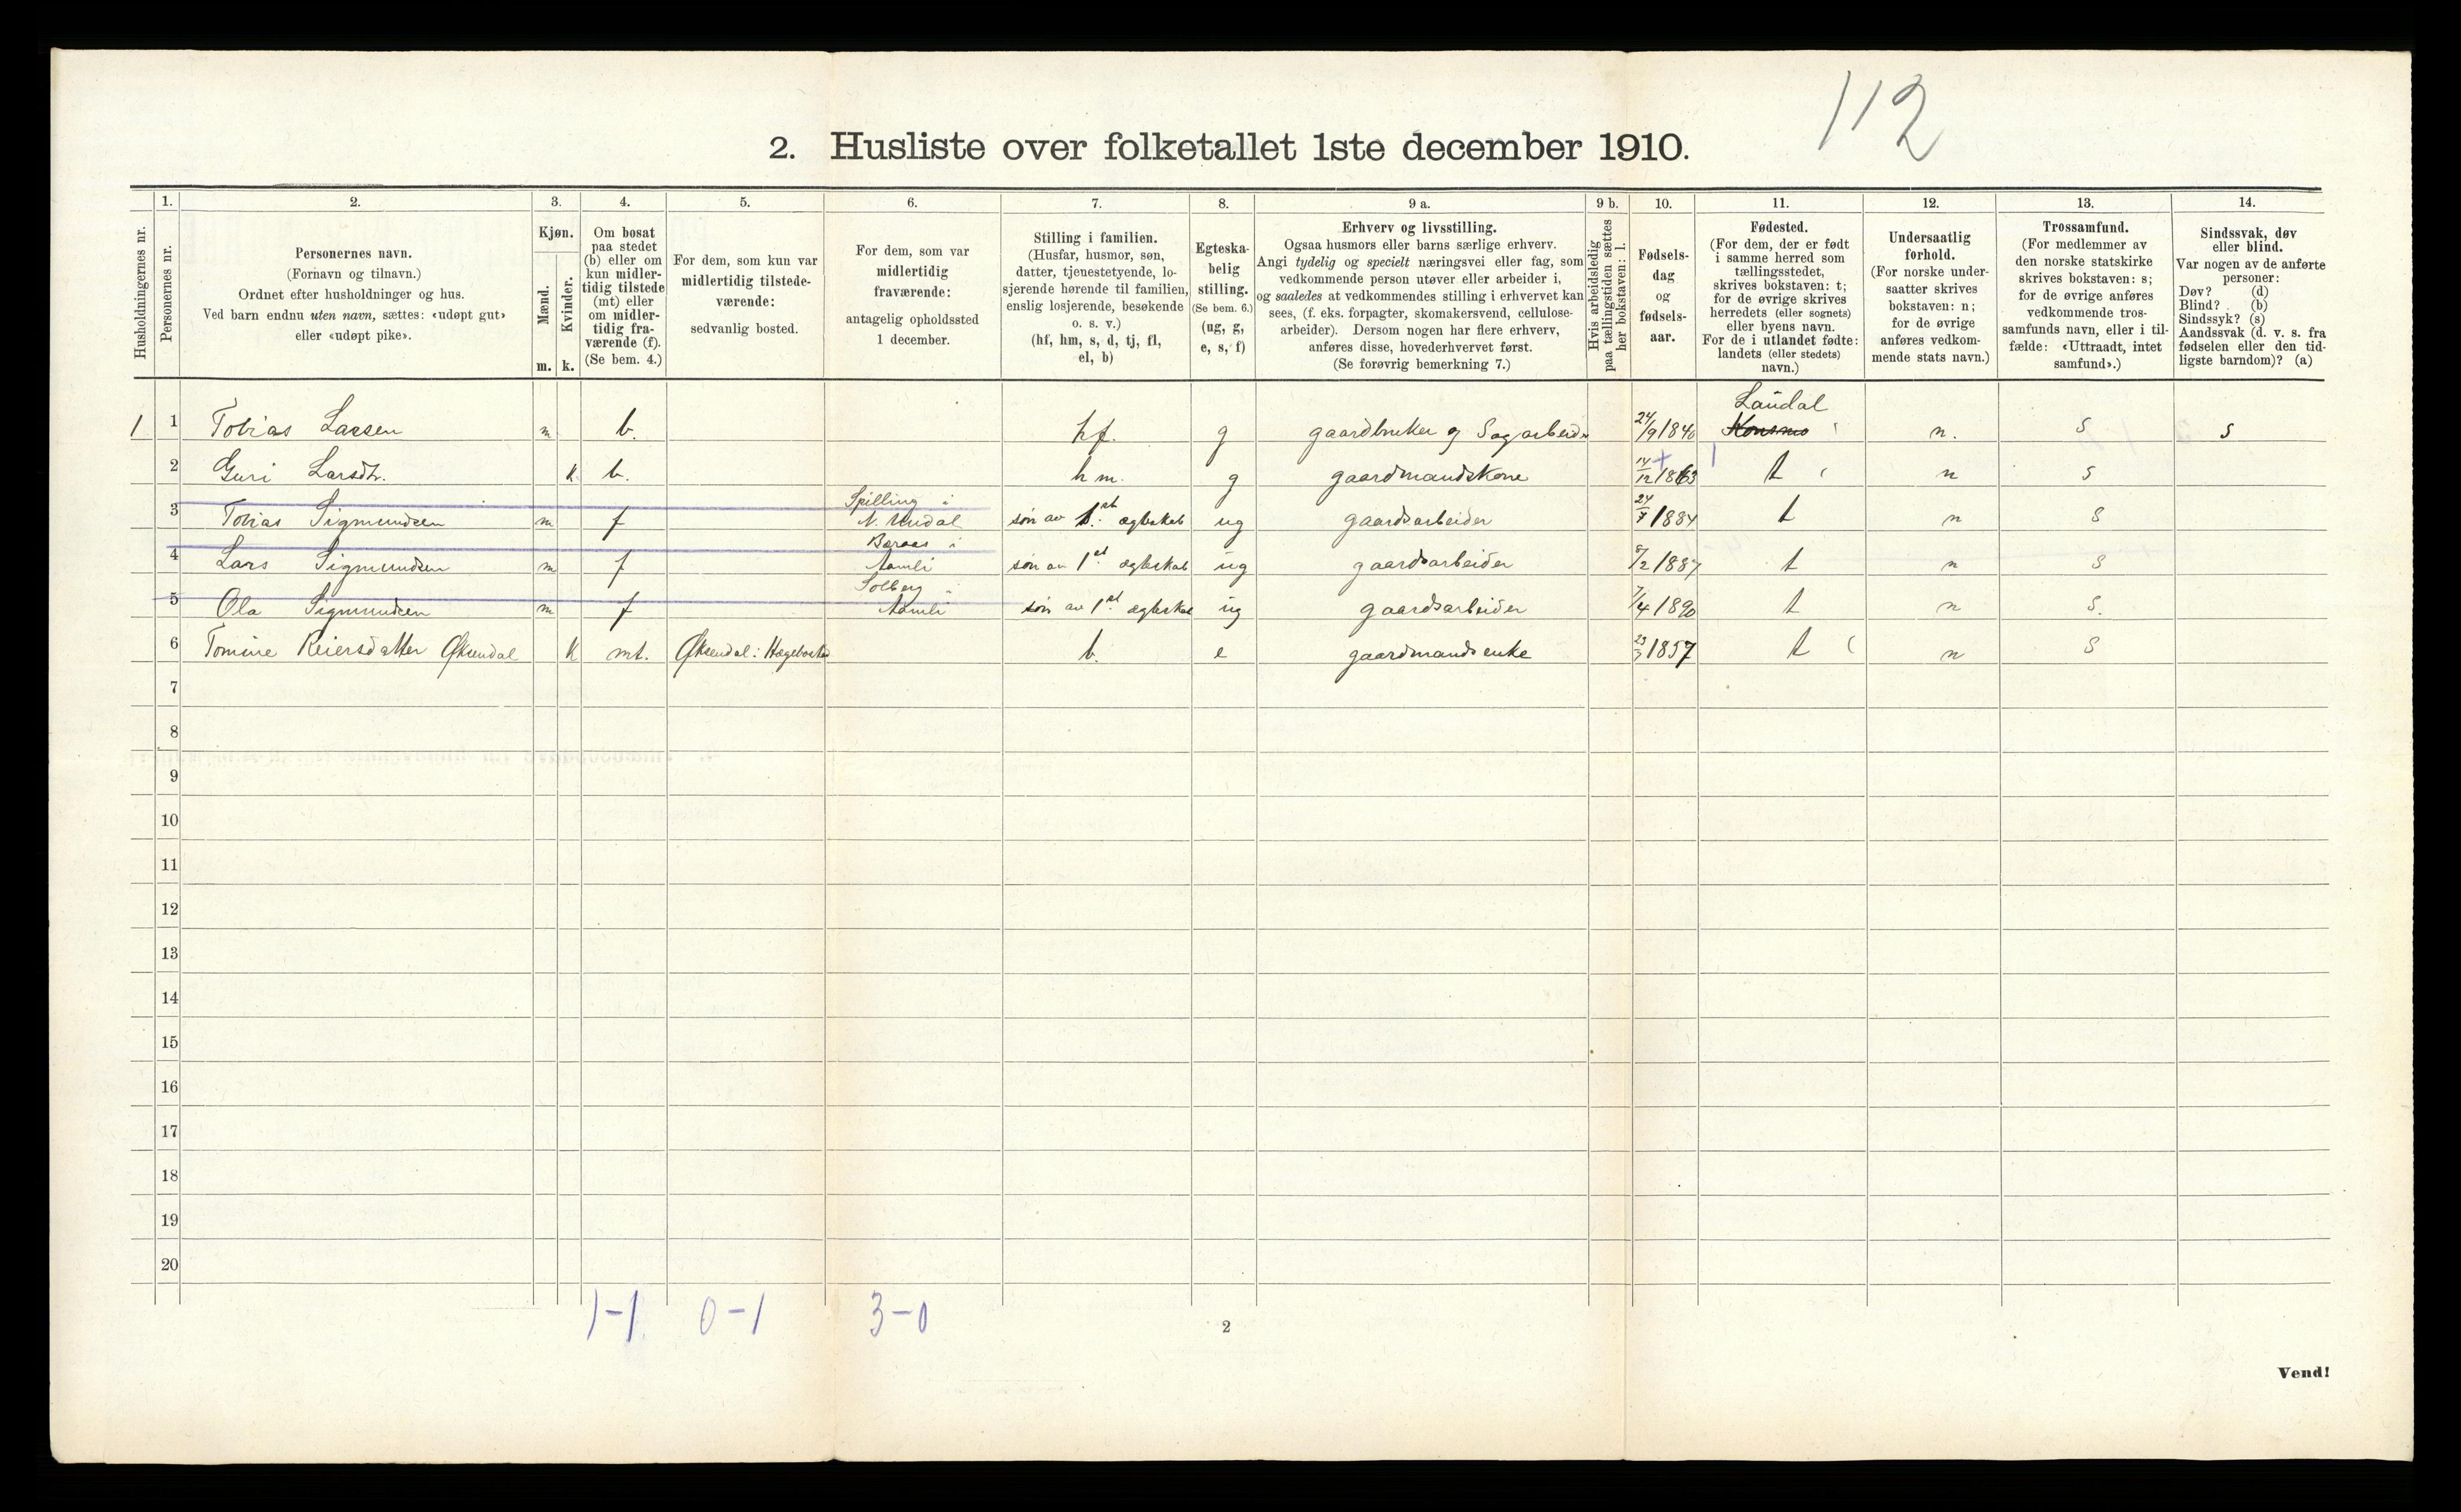 112
2. Husliste over folketallet 1ste december 1910.
Husholdningernes nr.
1.
Personernes nr.
2.
Personernes navn.
(Fornavn og tilnavn.)
Ordnet efter husholdninger og hus.
Ved barn endnu uten navn, sættes: «udøpt gut»
eller «udøpt pike».
3.
Kjøn.
Mænd.
Kvinder.
m. k.
4.
Om bosat
paa stedet
(b) eller om
kun midler-
tidig tilstede
(mt) eller
om midler-
tidig fra-
værende (f).
(Se bem. 4.)
5.
For dem, som kun var
midlertidig tilstede-
værende:
sedvanlig bosted.
6.
For dem, som var
midlertidig
fraværende:
antagelig opholdssted
1 december.
7.
Stilling i familien.
(Husfar, husmor, søn,
datter, tjenestetyende, lo-
sjerende hørende til familien,
enslig losjerende, besøkende
o. s. v.)
(hf, hm, s, d, tj, fl,
el, b)
8.
Egteska-
belig
stilling.
(Se bem. 6.)
(ug, g,
e, s, f)
9 a.
Erhverv og livsstilling.
Ogsaa husmors eller barns særlige erhverv.
Angi tydelig og specielt næringsvei eller fag, som
vedkommende person utøver eller arbeider i,
og saaledes at vedkommendes stilling i erhvervet kan
sees, (f. eks. forpagter, skomakersvend, cellulose-
arbeider). Dersom nogen har flere erhverv,
anføres disse, hovederhvervet først.
(Se forøvrig bemerkning 7.)
9 b.
Hvis arbeidsledig
paa tællingstiden sættes
her bokstaven: l.
10.
Fødsels-
dag
og
fødsels-
aar.
11.
Fødested.
(For dem, der er født
i samme herred som
tællingsstedet,
skrives bokstaven: t;
for de øvrige skrives
herredets (eller sognets)
eller byens navn.
For de i utlandet fødte:
landets (eller stedets)
navn.)
12.
Undersaatlig
forhold.
(For norske under-
saatter skrives
bokstaven: n;
for de øvrige
anføres vedkom-
mende stats navn.)
13.
Trossamfund.
(For medlemmer av
den norske statskirke
skrives bokstaven: s;
for de øvrige anføres
vedkommende tros-
samfunds navn, eller i til-
fælde: «Uttraadt, intet
samfund».)
14.
Sindssvak, døv
eller blind.
Var nogen av de anførte
personer:
Døv? (d)
Blind? (b)
Sindssyk? (s)
Aandssvak (d. v. s. fra
fødselen eller den tid-
ligste barndom)? (a)
Laudal
1 1 Tobias Larsen m b. hf. g gaardbruker og Sagarbeider 24/9 1840 Konsmo n. s s
2 Guri Larsdtr. k b. hm. g gaardmandskone 14/12 1863 t n s
Spilling i
3 Tobias Sigmundsen m f N. Undal søn av 1st. ægteskab ug gaardsarbeider 24/7 1884 t n s
i
4 Lars Sigmundsen m f Aamli søn av 1st. ægteskab ug gaardsarbeider 8/2 1887 t n s
Solberg i
5 Ola Sigmundsen m f Aamli søn av 1st. ægteskab ug gaardsarbeider 7/4 1890 t n s.
6 Tomine Reiersdatter Øksendal k mt. Øksendal i Hægebostad b. e gaardmandsenke 1857 t n s
7
8
9
10
11
12
13
14
15
16
17
18
19
20
1-1 0-1 3-0
2
Vend!